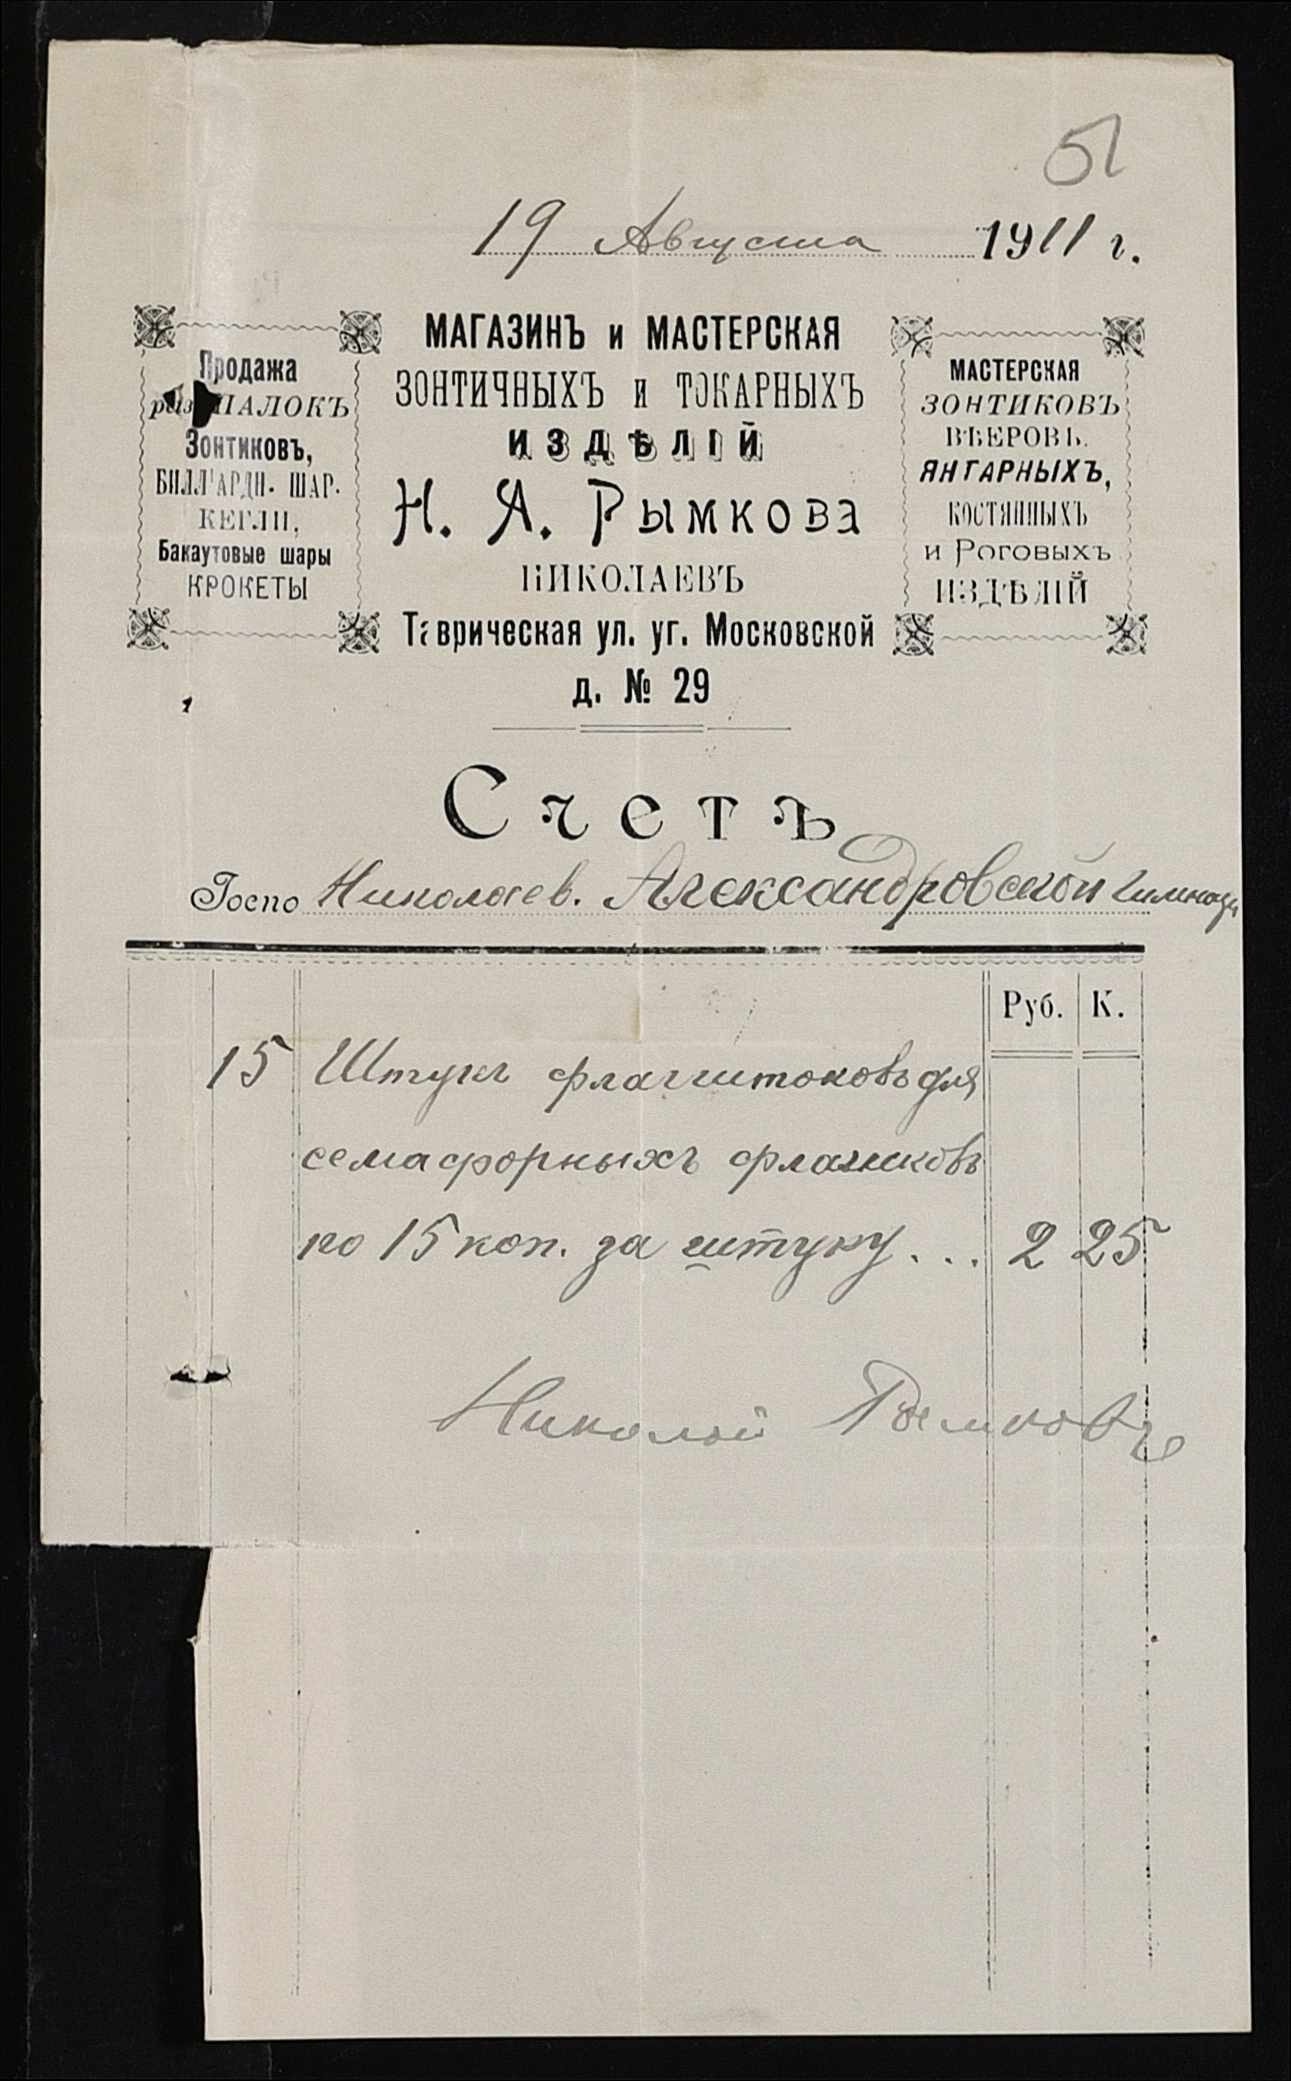 51
19 Августа 1911 г.
Продажа
раз. ПАЛОКЪ
Зонтиковъ,
БИЛЛІАРДН. ШАР.
КЕГЛИ,
Бакаутовые шары
КРОКЕТЫ
МАГАЗИНЪ и МАСТЕРСКАЯ
ЗОНТИЧНЫХЪ и ТОКАРНЫХЪ
ИЗДѢЛІЙ
Н. А. Рымкова
НИКОЛАЕВЪ
Таврическая ул. уг. Московской
д. № 29
МАСТЕРСКАЯ
ЗОНТИКОВЪ
ВѢЕРОВЪ.
ЯНТАРНЫХЪ,
КОСТЯННЫХЪ
и Роговыхъ
ИЗДѢЛІЙ
Счетъ
Госпо Николаев. Александровской Гимнази
Руб. К.
15 Штукъ флагштоковъ для
семафорныхъ флажковъ
по 15 коп. за штуку... 2 25
Николай Рымковъ